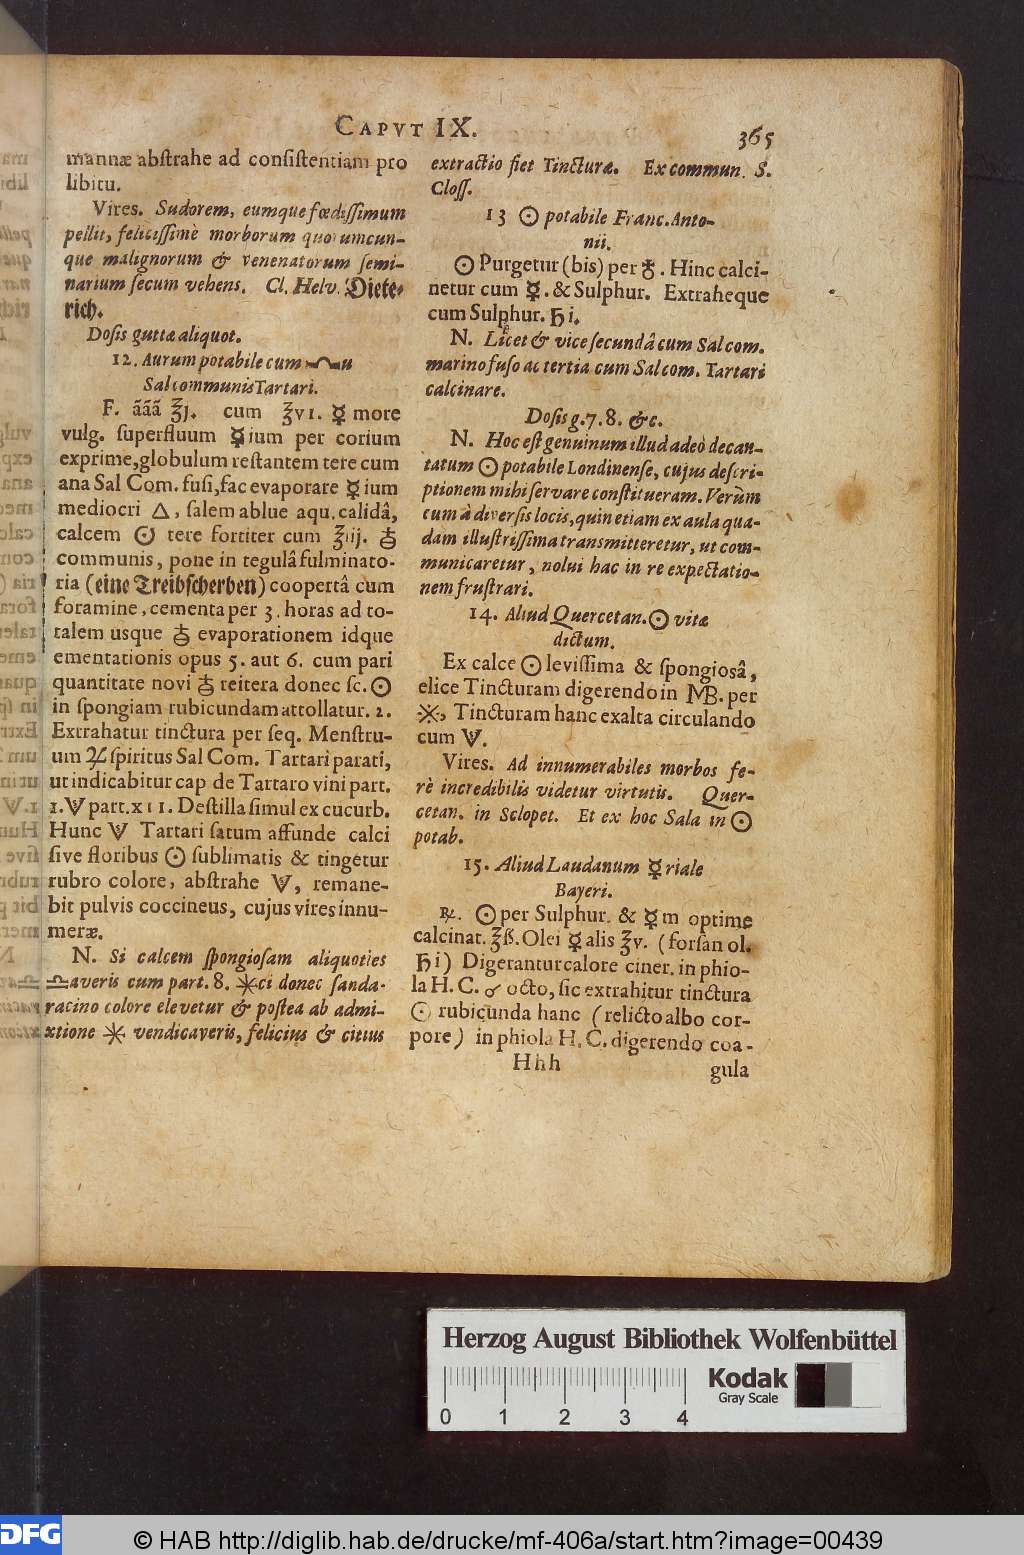 CAPVT IX.
365
mannæ abſtrahe ad conſiſtentiam pro
libitu.
Vires. Sudorem, eumque fœdiſſimum
pellit, feliciſſimè morborum quorumcun-
que malignorum & venenatorum ſemi-
narium ſecum vehens. Cl. Helv. Diete-
rich.
Doſis guttæ aliquot.
12. Aurum potabile cum u
Sal communis Tartari.
F. ããã ℥j. cum ℥vi. ☿ more
vulg. ſuperfluum ☿ium per corium
exprime, globulum reſtantem tere cum
ana Sal Com. fuſi, fac evaporare ☿ium
mediocri △, ſalem ablue aqu. calidâ,
calcem ☉ tere fortiter cum ℥iij. 🜍
communis, pone in tegulâ fulminato-
ria (eine Treibſcherben) coopertâ cum
foramine, cementa per 3. horas ad to-
talem usque 🜍 evaporationem idque
ementationis opus 5. aut 6. cum pari
quantitate novi 🜍 reitera donec ſc. ☉
in ſpongiam rubicundam attollatur. 2.
Extrahatur tinctura per ſeq. Menſtru-
um ♃ ſpiritus Sal Com. Tartari parati,
ut indicabitur cap de Tartaro vini part.
1. V part. xii. Deſtilla ſimul ex cucurb.
Hunc V Tartari ſatum affunde calci
ſive floribus ☉ ſublimatis & tingetur
rubro colore, abſtrahe V, remane-
bit pulvis coccineus, cujus vires innu-
meræ.
N. Si calcem ſpongioſam aliquoties
♎averis cum part. 8. ✳ci donec ſanda-
racino colore elevetur & poſtea ab admi-
xtione ✳ vendicaveris, felicius & citius
extractio fiet Tincturæ. Ex commun. S.
Cloſſ.
13 ☉ potabile Franc. Anto-
nii.
☉ Purgetur (bis) per ♁. Hinc calci-
netur cum ☿. & Sulphur. Extraheque
cum Sulphur. ♄i.
N. Licet & vice ſecundâ cum Sal com.
marino fuſo ac tertia cum Sal com. Tartari
calcinare.
Doſis g. 7. 8. &c.
N. Hoc eſt genuinum illud adeò decan-
tatum ☉ potabile Londinenſe, cujus deſcri-
ptionem mihi ſervare conſtitueram. Verùm
cum à diverſis locis, quin etiam ex aula qua-
dam illuſtriſſima transmitteretur, ut com-
municaretur, nolui hac in re expectatio-
nem fruſtrari.
14. Aliud Quercetan. ☉ vitæ
dictum.
Ex calce ☉ leviſſima & ſpongioſâ,
elice Tincturam digerendo in MB. per
※, Tincturam hanc exalta circulando
cum V.
Vires. Ad innumerabiles morbos fe-
rè incredibilis videtur virtutis. Quer-
cetan. in Sclopet. Et ex hoc Sala in ☉
potab.
15. Aliud Laudanum ☿riale
Bayeri.
℞. ☉ per Sulphur. & ☿m optime
calcinat. ℥ß. Olei ☿alis ℥v. (forſan ol.
♄i) Digerantur calore ciner. in phio-
la H. C. ☌ octo, ſic extrahitur tinctura
☉ rubicunda hanc (relicto albo cor-
pore) in phiola H. C. digerendo coa-
Hhh
gula
Herzog August Bibliothek Wolfenbüttel
Kodak
Gray Scale
0 1 2 3 4
DFG
© HAB http://diglib.hab.de/drucke/mf-406a/start.htm?image=00439